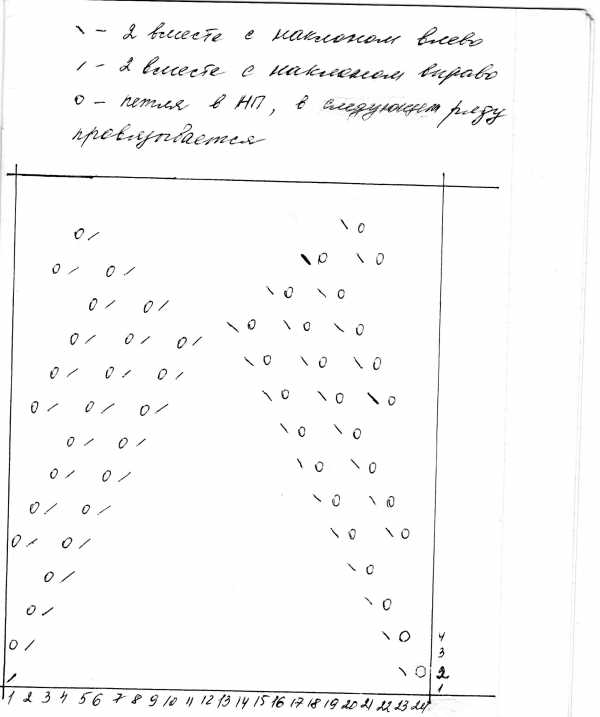 \ – 2 вместе с наклоном влево
/ – 2 вместе с наклоном вправо
о – петля в НП, в следующем ряду
провязывается
о / \ о
о / о / \ о \ о
о / о / \ о \ о
о / о / о / \ о \ о \ о
о / о / о / \ о \ о \ о
о / о / о / \ о \ о \ о
о / о / \ о \ о
о / о / \ о \ о
о / о / \ о \ о
о / о / \ о \ о
о / \ о
о / \ о
о / \ о 4
3
/ \ о 2
1
1 2 3 4 5 6 7 8 9 10 11 12 13 14 15 16 17 18 19 20 21 22 23 24